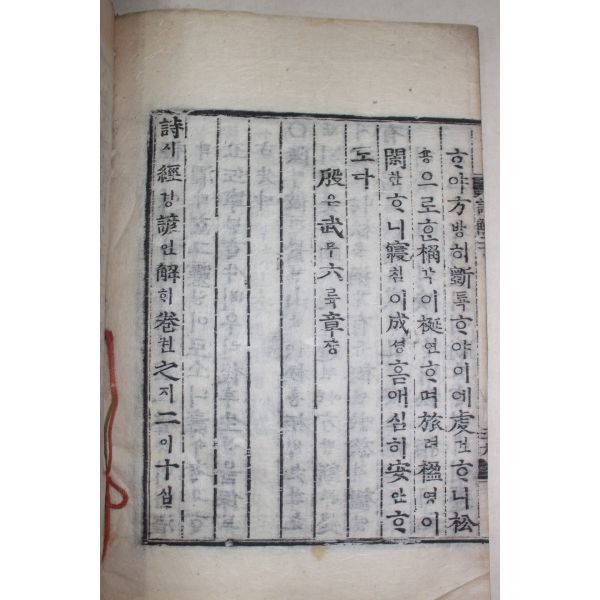 ᄒᆞ야方방히斲톡ᄒᆞ야이에虔건ᄒᆞ니松
숑으로ᄒᆞᆫ桷각이梴연ᄒᆞ며旅려楹영이
閑한ᄒᆞ니寢침이成셩홈애심히安안ᄒᆞ
도다
殷은武무六륙章쟝
詩시經경諺언解ᄒᆡ卷권之지二이十십